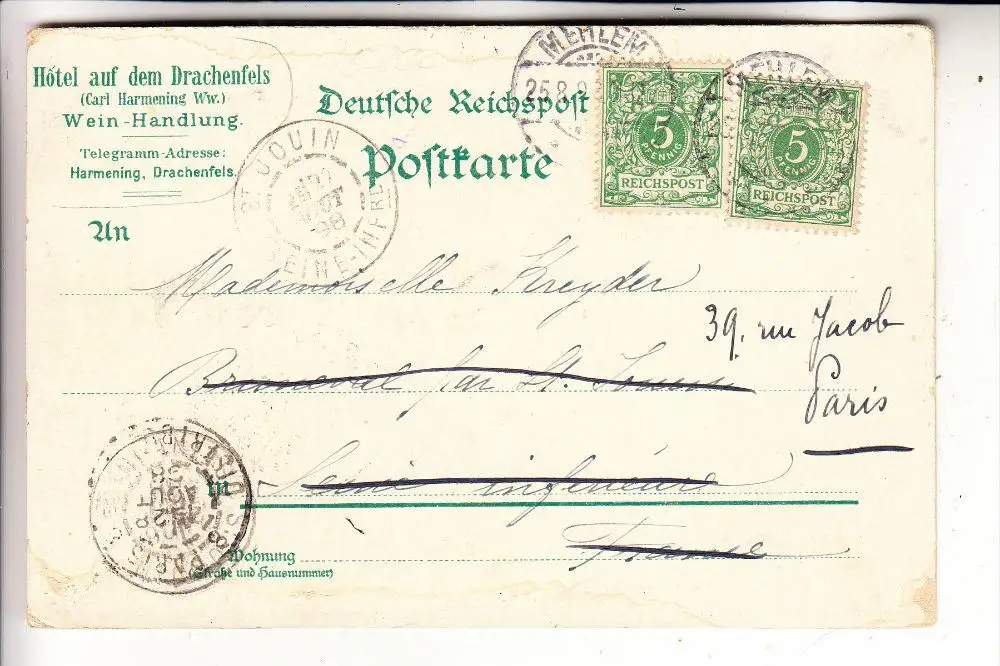 Hôtel auf dem Drachenfels
(Carl Harmening Ww.)
Wein-Handlung.
Telegramm-Adresse:
Harmening, Drachenfels.
Deutsche Reichspost
Postkarte
MEHLEM
25.8.9
5
PFENNIG
REICHSPOST
MEHLEM
5
PFENNIG
REICHSPOST
ST JOUIN
AOUT
98
SEINE-INFRE
An
Mademoiselle Kreyder
39, rue Jacob
Paris
Bruneval par St. Jouin
in Seine inférieure
France
Wohnung
(Straße und Hausnummer)
PARIS
DISTRIB